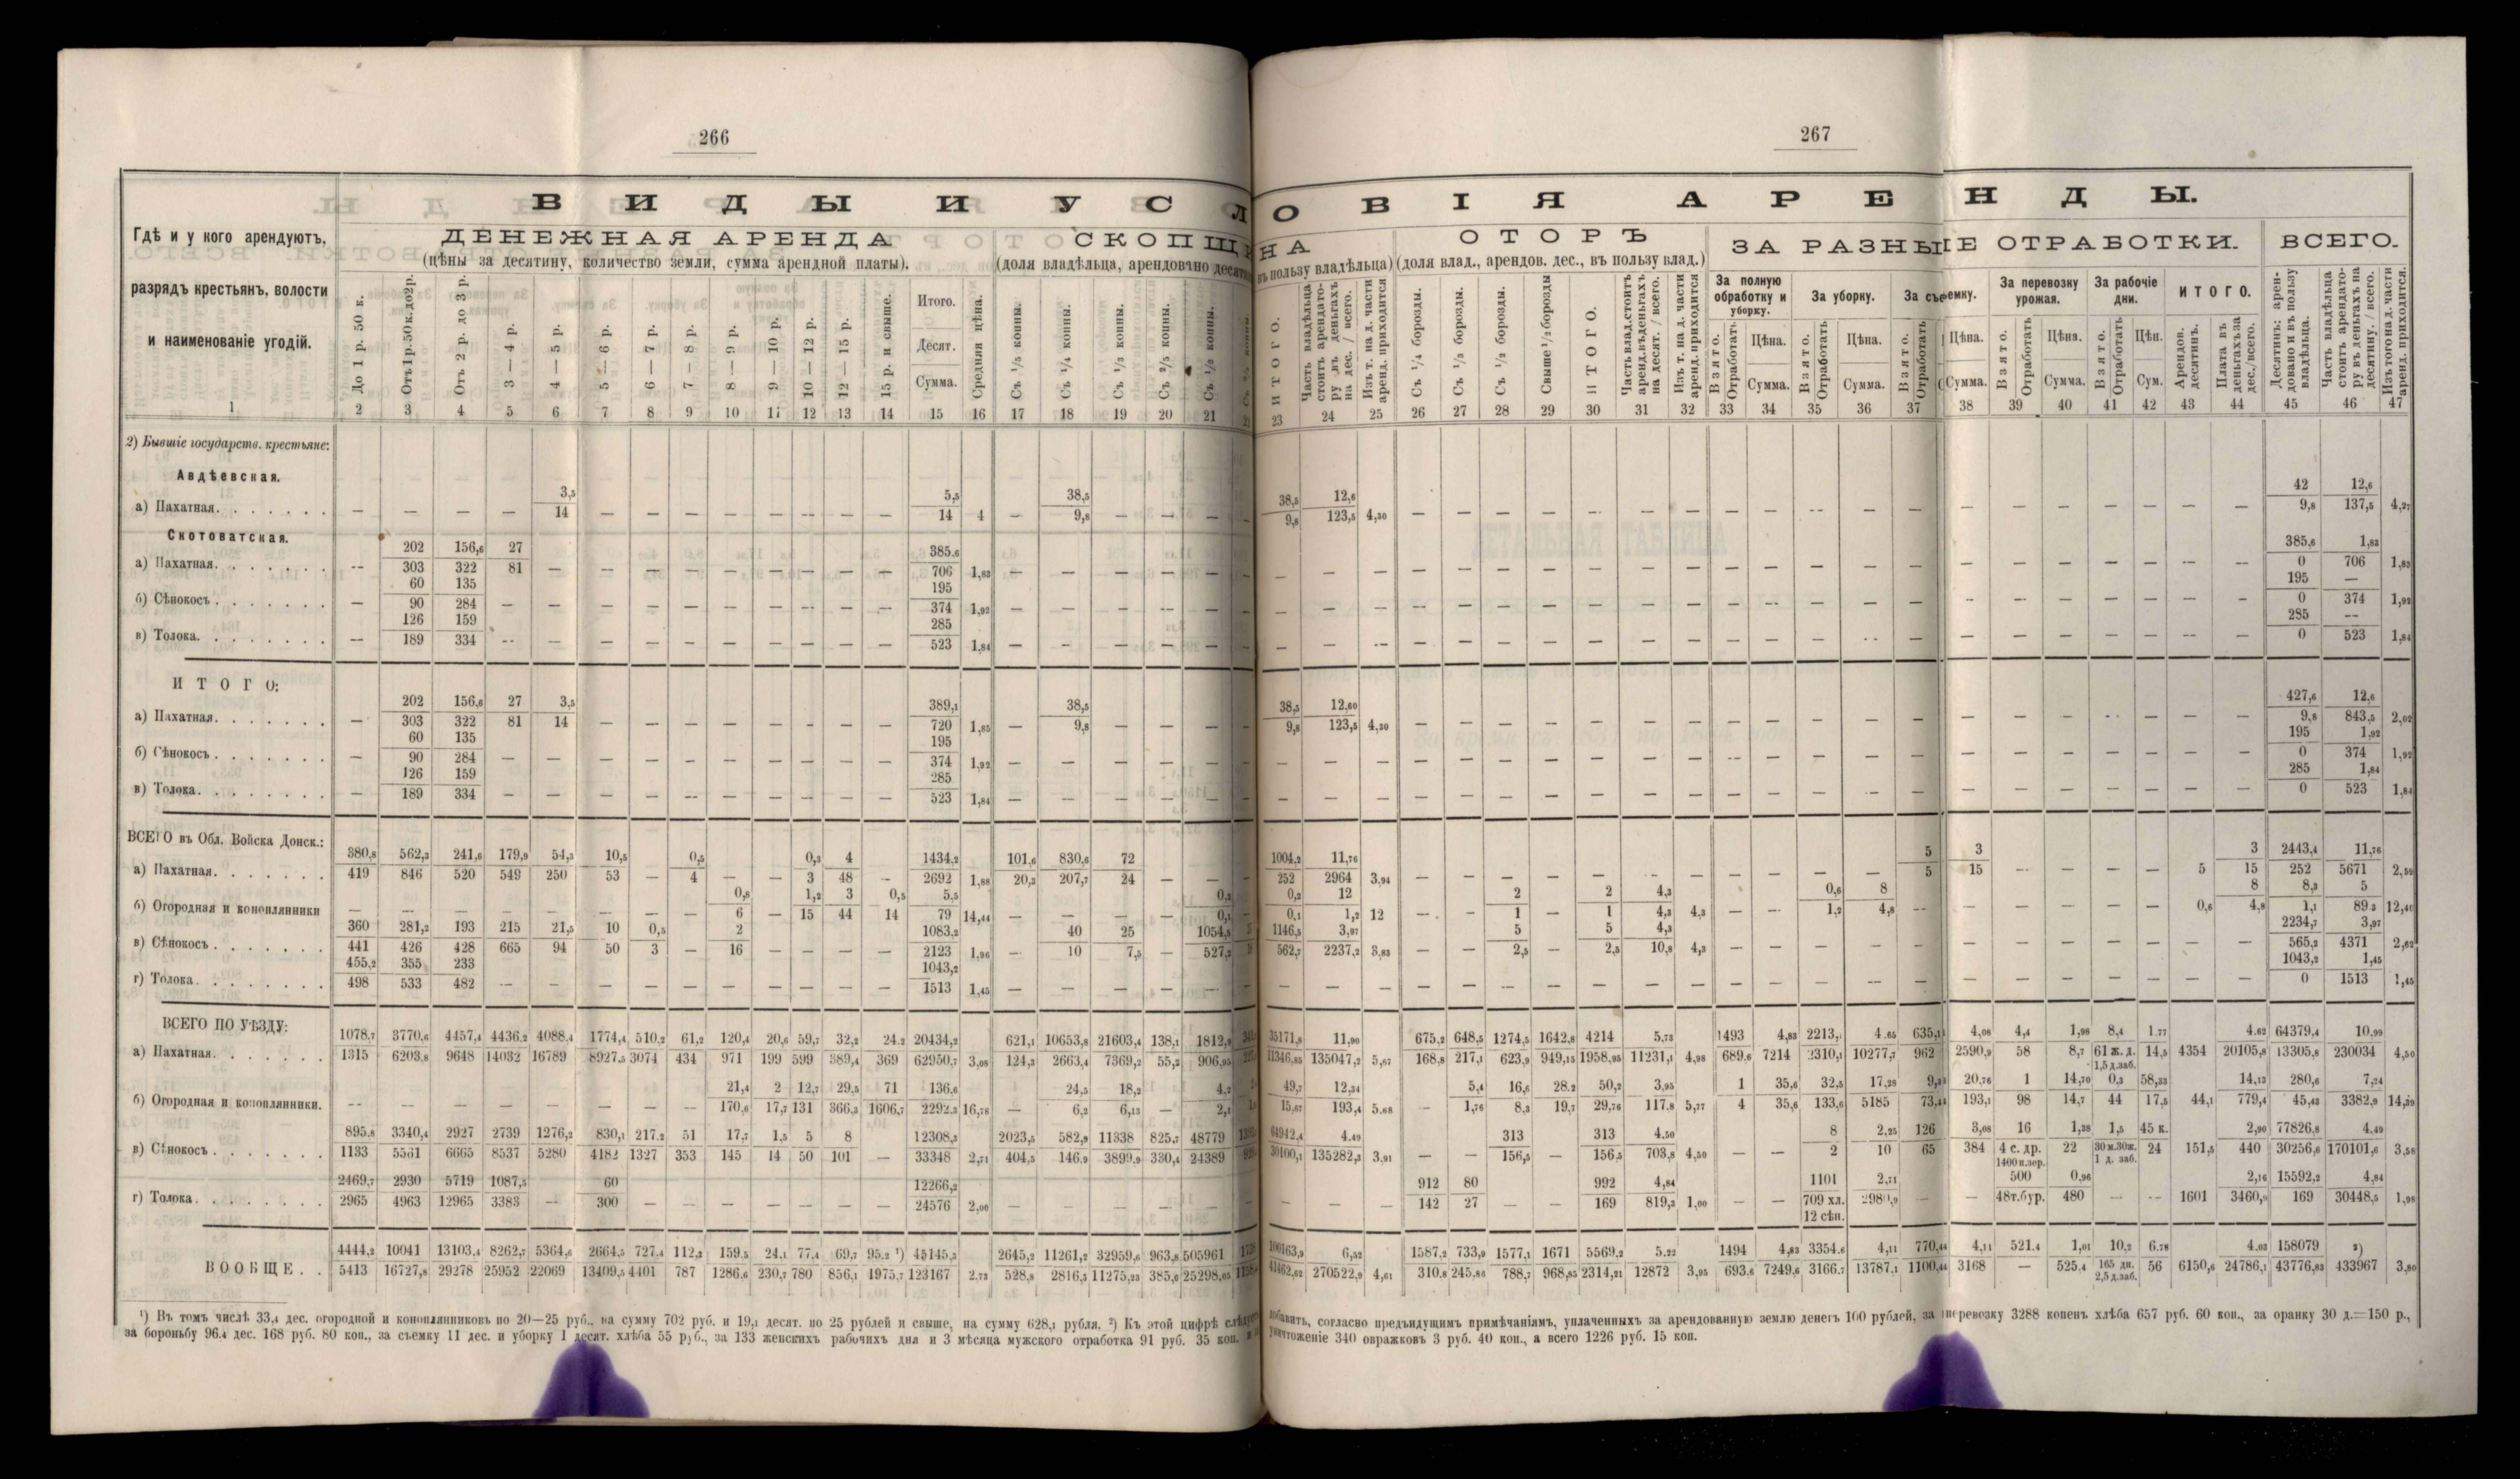 266
267
ВИДЫ И УСЛОВІЯ АРЕНДЫ.
Гдѣ и у кого арендуютъ,
разрядъ крестьянъ, волости
и наименованіе угодій.
ДЕНЕЖНАЯ АРЕНДА
(цѣны за десятину, количество земли, сумма арендной платы).
СКОПЩИНА
(доля владѣльца, арендовано десятинъ въ пользу владѣльца)
ОТОРЪ
(доля влад., арендов. дес., въ пользу влад.)
ЗА РАЗНЫЕ ОТРАБОТКИ.
ВСЕГО.
До 1 р. 50 к.
Отъ 1 р. 50 к. до 2 р.
Отъ 2 р. до 3 р.
3 — 4 р.
4 — 5 р.
5 — 6 р.
6 — 7 р.
7 — 8 р.
8 — 9 р.
9 — 10 р.
10 — 12 р.
12 — 15 р.
15 р. и свыше.
Итого.
Десят.
Сумма.
Средняя цѣна.
Съ 1/5 копны.
Съ 1/4 копны.
Съ 1/3 копны.
Съ 2/5 копны.
Съ 1/2 копны.
ИТОГО.
Часть владѣльца стоитъ арендатору въ деньгахъ на дес. / всего.
Изъ т. на д. части аренд. приходится
Съ 1/4 борозды.
Съ 1/3 борозды.
Съ 1/2 борозды.
Свыше 1/2 борозды
ИТОГО.
Часть влад. стоитъ аренд. въ деньгахъ на десят. / всего.
Изъ т. на д. части аренд. приходится
За полную обработку и уборку.
За уборку.
За съемку.
За перевозку урожая.
За рабочіе дни.
ИТОГО.
Взято. Отработать
Цѣна. Сумма.
Взято. Отработать
Цѣна. Сумма.
Взято. Отработать
Цѣна. Сумма.
Взято. Отработать
Цѣна. Сумма.
Взято. Отработать
Цѣн. Сум.
Арендов. десятинъ.
Плата въ деньгахъ за дес./всего.
Десятинъ: арендовано и въ пользу владѣльца.
Часть владѣльца стоитъ арендатору въ деньгахъ на десятину. / всего.
Изъ того на д. части аренд. приходится.
1 2 3 4 5 6 7 8 9 10 11 12 13 14 15 16 17 18 19 20 21
23 24 25 26 27 28 29 30 31 32 33 34 35 36 37 38 39 40 41 42 43 44 45 46 47
2) Бывшіе государств. крестьяне:
Авдѣевская.
3,5 5,5 38,5 38,5 12,6 42 12,6
а) Пахатная. — — — — 14 — — — — — — — — 14 4 — 9,8 — — — 9,8 123,5 4,30 — — — — — — — — — — — — — — — — — — — 9,8 137,5 4,27
Скотоватская.
202 156,6 27 385,6 385,6 1,83
а) Пахатная. — 303 322 81 — — — — — — — — — 706 1,83 — — — — — 0 706 1,83
60 135 195 195 —
б) Сѣнокосъ. — 90 284 — — — — — — — — — — 374 1,92 — — — — — 0 374 1,92
126 159 285 285 —
в) Толока. — 189 334 — — — — — — — — — — 523 1,84 — — — — — 0 523 1,84
ИТОГО:
202 156,6 27 3,5 389,1 38,5 38,5 12,60 427,6 12,6
а) Пахатная. — 303 322 81 14 — — — — — — — — 720 1,85 — 9,8 — — — 9,8 123,5 4,30 9,8 843,5 2,02
60 135 195 195 1,92
б) Сѣнокосъ. — 90 284 — — — — — — — — — — 374 1,92 — — — — — 0 374 1,92
126 159 285 285 1,84
в) Толока. — 189 334 — — — — — — — — — — 523 1,84 — — — — — 0 523 1,84
ВСЕГО въ Обл. Войска Донск.:
380,8 562,3 241,6 179,9 54,3 10,5 0,5 0,3 4 1434,2 101,6 830,6 72 1004,2 11,76 5 3 3 2443,4 11,76
а) Пахатная. 419 846 520 549 250 53 — 4 — — 3 48 — 2692 1,88 20,3 207,7 24 — — 252 2964 3,94 5 15 5 15 252 5671 2,59
0,8 1,2 3 0,5 5,5 0,2 0,2 12 2 2 4,3 0,6 8 8 8,3 5
б) Огородная и коноплянники — — — — — — — — 6 — 15 44 14 79 14,44 — — — — 0,1 0,1 1,2 12 — — 1 — 1 4,3 4,3 — — 1,2 4,8 0,6 4,8 1,1 89,3 12,40
360 281,2 193 215 21,5 10 0,5 2 1083,2 40 25 1054,5 1146,5 3,97 5 5 4,3 2234,7 3,97
в) Сѣнокосъ. 441 426 428 665 94 50 3 — 16 — — — — 2123 1,96 — 10 7,5 — 527,2 562,7 2237,2 3,83 — — 2,5 — 2,5 10,8 4,3 565,2 4371 2,62
455,2 355 233 1043,2 1043,2 1,45
г) Толока. 498 533 482 — — — — — — — — — — 1513 1,45 — — — — — 0 1513 1,45
ВСЕГО ПО УѢЗДУ:
1078,7 3770,6 4457,4 4436,2 4088,4 1774,4 510,2 61,2 120,4 20,6 59,7 32,2 24,2 20434,2 621,1 10653,8 21603,4 138,1 1812,9 35171,8 11,90 675,2 648,5 1274,5 1642,8 4214 5,73 1493 4,83 2213,1 4,65 635,1 4,08 4,4 1,98 8,4 1,77 4,62 64379,4 10,99
а) Пахатная. 1315 6203,8 9648 14032 16789 8927,5 3074 434 971 199 599 389,4 369 62950,7 3,08 124,3 2663,4 7369,2 55,2 906,95 11346,85 135047,2 5,67 168,8 217,1 623,9 949,15 1958,95 11231,1 4,98 689,6 7214 2310,1 10277,7 962 2590,9 58 8,7 61 ж. д. 1,5 д. заб. 14,5 4354 20105,8 13305,8 230034 4,50
21,4 2 12,7 29,5 71 136,6 24,5 18,2 4,2 49,7 12,34 5,4 16,6 28,2 50,2 3,95 1 35,6 32,5 17,28 20,76 1 14,70 0,3 58,33 14,13 280,6 7,24
б) Огородная и коноплянники. — — — — — — — — 170,6 17,7 131 366,3 1606,7 2292,3 16,78 — 6,2 6,13 — 2,1 15,67 193,4 5,68 — 1,76 8,3 19,7 29,76 117,8 5,77 4 35,6 133,6 5185 73,44 193,1 98 14,7 44 17,5 44,1 779,4 45,43 3382,9 14,39
895,8 3340,4 2927 2739 1276,2 830,1 217,2 51 17,7 1,5 5 8 12308,3 2023,5 582,9 11338 825,7 48779 64942,4 4,49 313 313 4,50 8 2,25 126 3,08 16 1,38 1,5 45 к. 2,90 77826,8 4,49
в) Сѣнокосъ. 1133 5561 6665 8537 5280 4182 1327 353 145 14 50 101 — 33348 2,71 404,5 146,9 3899,9 330,4 24389 30100,1 135282,3 3,91 — — 156,5 — 156,5 703,8 4,50 — — 2 10 65 384 4 с. др. 1400 п. зер. 22 30 м. 30 ж. 1 д. заб. 24 151,5 440 30256,6 170101,6 3,58
2469,7 2930 5719 1087,5 60 12266,2 912 80 992 4,84 1101 2,71 500 0,96 2,16 15592,2 4,84
г) Толока. 2965 4963 12965 3383 — 300 — — — — — — — 24576 2,00 — — — — — — — — 142 27 — — 169 819,3 1,00 — — 709 хл. 12 сѣн. 2980,9 — — 48 т. бур. 480 — — 1601 3460,9 169 30448,5 1,98
4444,2 10041 13103,4 8262,7 5364,6 2664,5 727,4 112,2 159,5 24,1 77,4 69,7 95,2 ¹) 45145,3 2645,2 11261,2 32959,6 963,8 505961 100163,9 6,52 1587,2 733,9 1577,1 1671 5569,2 5,22 1494 4,83 3354,6 4,11 770,44 4,11 521,4 1,01 10,2 6,78 4,03 158079 ²)
ВООБЩЕ. 5413 16727,8 29278 25952 22069 13409,5 4401 787 1286,6 230,7 780 856,1 1975,7 123167 2,73 528,8 2816,5 11275,23 385,6 25298,05 41462,62 270522,9 4,61 310,8 245,86 788,7 968,85 2314,21 12872 3,95 693,6 7249,6 3166,7 13787,1 1100,44 3168 — 525,4 165 дн. 2,5 д. заб. 56 6150,6 24786,1 43776,83 433967 3,80
¹) Въ томъ числѣ 33,4 дес. огородной и коноплянниковъ по 20—25 руб., на сумму 702 руб. и 19,1 десят. по 25 рублей и свыше, на сумму 628,1 рубля. ²) Къ этой цифрѣ слѣдуетъ добавить, согласно предъидущимъ примѣчаніямъ, уплаченныхъ за арендованную землю денегъ 100 рублей, за перевозку 3288 копенъ хлѣба 657 руб. 60 коп., за оранку 30 д.=150 р.,
за бороньбу 96,4 дес. 168 руб. 80 коп., за съемку 11 дес. и уборку 1 десят. хлѣба 55 руб., за 133 женскихъ рабочихъ дня и 3 мѣсяца мужского отработка 91 руб. 35 коп. и уничтоженіе 340 овражковъ 3 руб. 40 коп., а всего 1226 руб. 15 коп.